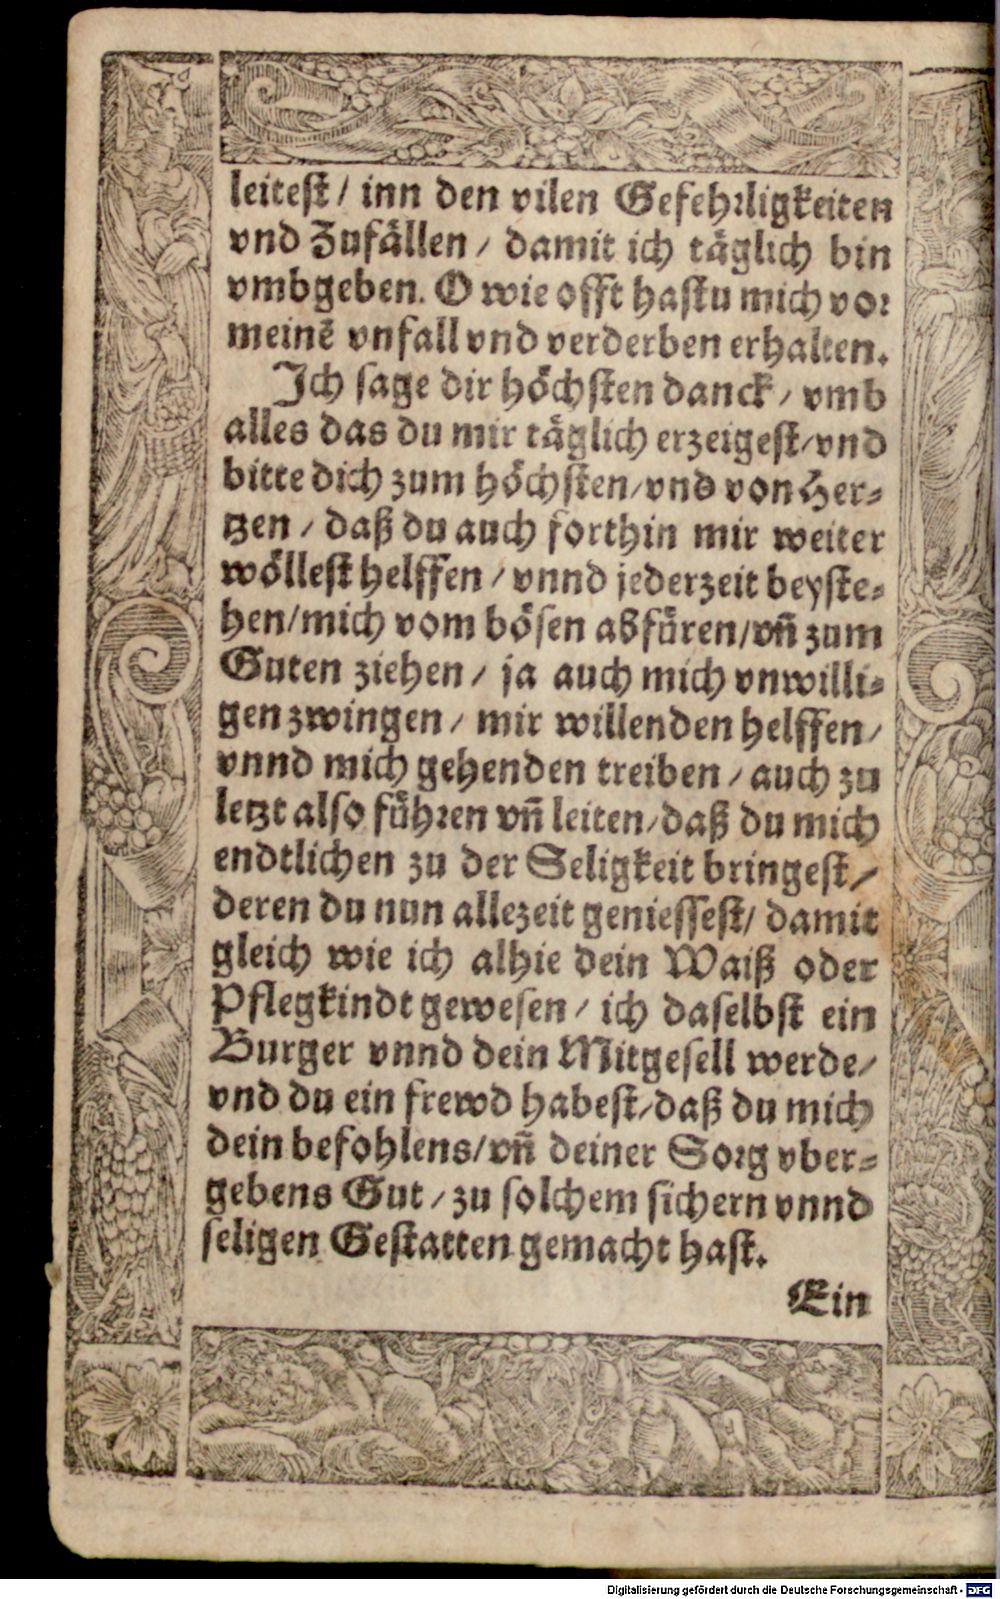 leitest/ inn den vilen Gefehrligkeiten
vnd Zufällen / damit ich täglich bin
vmbgeben. O wie offt hastu mich vor
meinẽ vnfall vnd verderben erhalten.
Ich sage dir höchsten danck / vmb
alles das du mir täglich erzeigest/vnd
bitte dich zum höchsten/vnd von Her⸗
tzen / daß du auch forthin mir weiter
wöllest helffen / vnnd jederzeit beyste⸗
hen/mich vom bösen abfüren/vñ zum
Guten ziehen / ja auch mich vnwilli⸗
gen zwingen / mir willenden helffen/
vnnd mich gehenden treiben / auch zu
letzt also führen vñ leiten/daß du mich
endtlichen zu der Seligkeit bringest/
deren du nun allezeit geniessest/ damit
gleich wie ich alhie dein Waiß oder
Pflegkindt gewesen / ich daselbst ein
Burger vnnd dein Mitgesell werde/
vnd du ein frewd habest/daß du mich
dein befohlens/vñ deiner Sorg vber⸗
gebens Gut / zu solchem sichern vnnd
seligen Gestatten gemacht hast.
Ein
Digitalisierung gefördert durch die Deutsche Forschungsgemeinschaft - DFG